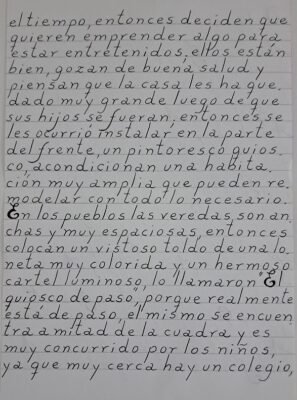 el tiempo, entonces deciden que
quieren emprender algo para
estar entretenidos, ellos están
bien, gozan de buena salud y
piensan que la casa les ha que.
dado muy grande luego de que
sus hijos se fueran, entonces se
les ocurrió instalar en la parte
del frente, un pintoresco quios.
co, acondicionan una habita.
ción muy amplia que pueden re.
modelar con todo lo necesario.
En los pueblos las veredas son an.
chas y muy espaciosas, entonces
colocan un vistoso toldo de una lo.
neta muy colorida y un hermoso
cartel luminoso, lo llamaron "El
quiosco de paso", porque realmente
está de paso, el mismo se encuen
tra a mitad de la cuadra y es
muy concurrido por los niños,
ya que muy cerca hay un colegio,